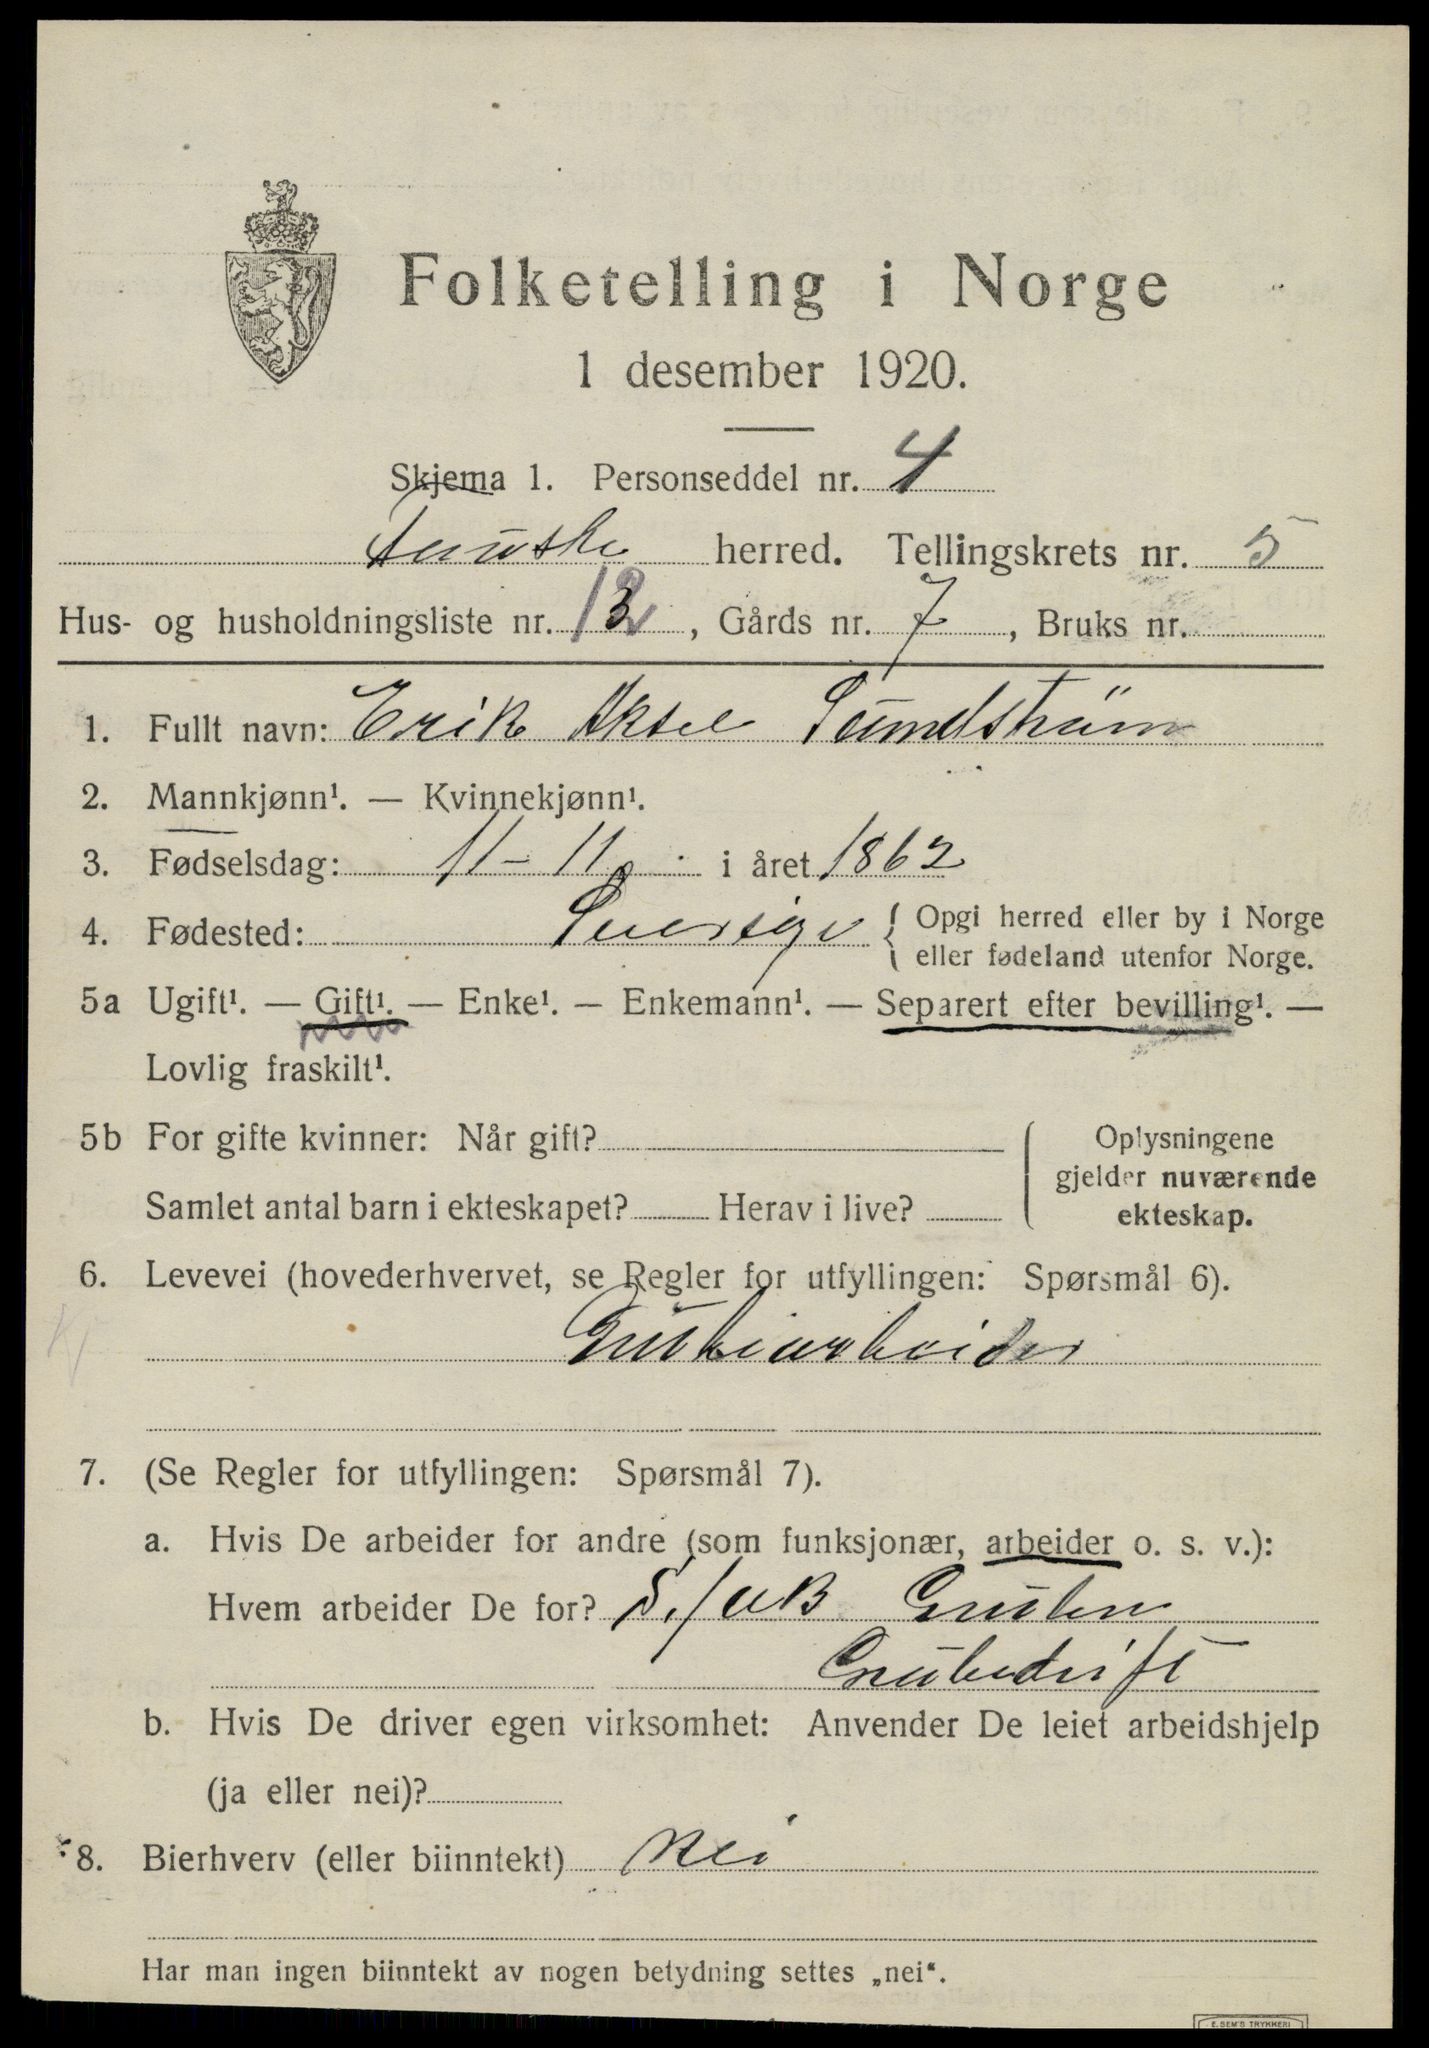 Folketelling i Norge
1 desember 1920.
Skjema 1. Personseddel nr. 4
Fauske herred. Tellingskrets nr. 5
Hus- og husholdningsliste nr. 13, Gårds nr. 7, Bruks nr.
1. Fullt navn: Erik Aksel Sundström
2. Mannkjønn¹. — Kvinnekjønn¹.
3. Fødselsdag: 11-11 i året 1862
4. Fødested: Sverige { Opgi herred eller by i Norge
eller fødeland utenfor Norge.
5a Ugift¹. — Gift¹. — Enke¹. — Enkemann¹. — Separert efter bevilling¹. —
Lovlig fraskilt¹.
5b For gifte kvinner: Når gift?
Samlet antal barn i ekteskapet? Herav i live?
Oplysningene
gjelder nuværende
ekteskap.
6. Levevei (hovederhvervet, se Regler for utfyllingen: Spørsmål 6).
Grubearbeider
7. (Se Regler for utfyllingen: Spørsmål 7).
a. Hvis De arbeider for andre (som funksjonær, arbeider o. s. v.):
Hvem arbeider De for? Gruben
Grubedrift
b. Hvis De driver egen virksomhet: Anvender De leiet arbeidshjelp
(ja eller nei)?
8. Bierhverv (eller biinntekt) Nei
Har man ingen biinntekt av nogen betydning settes „nei“.
E. SEM'S TRYKKERI